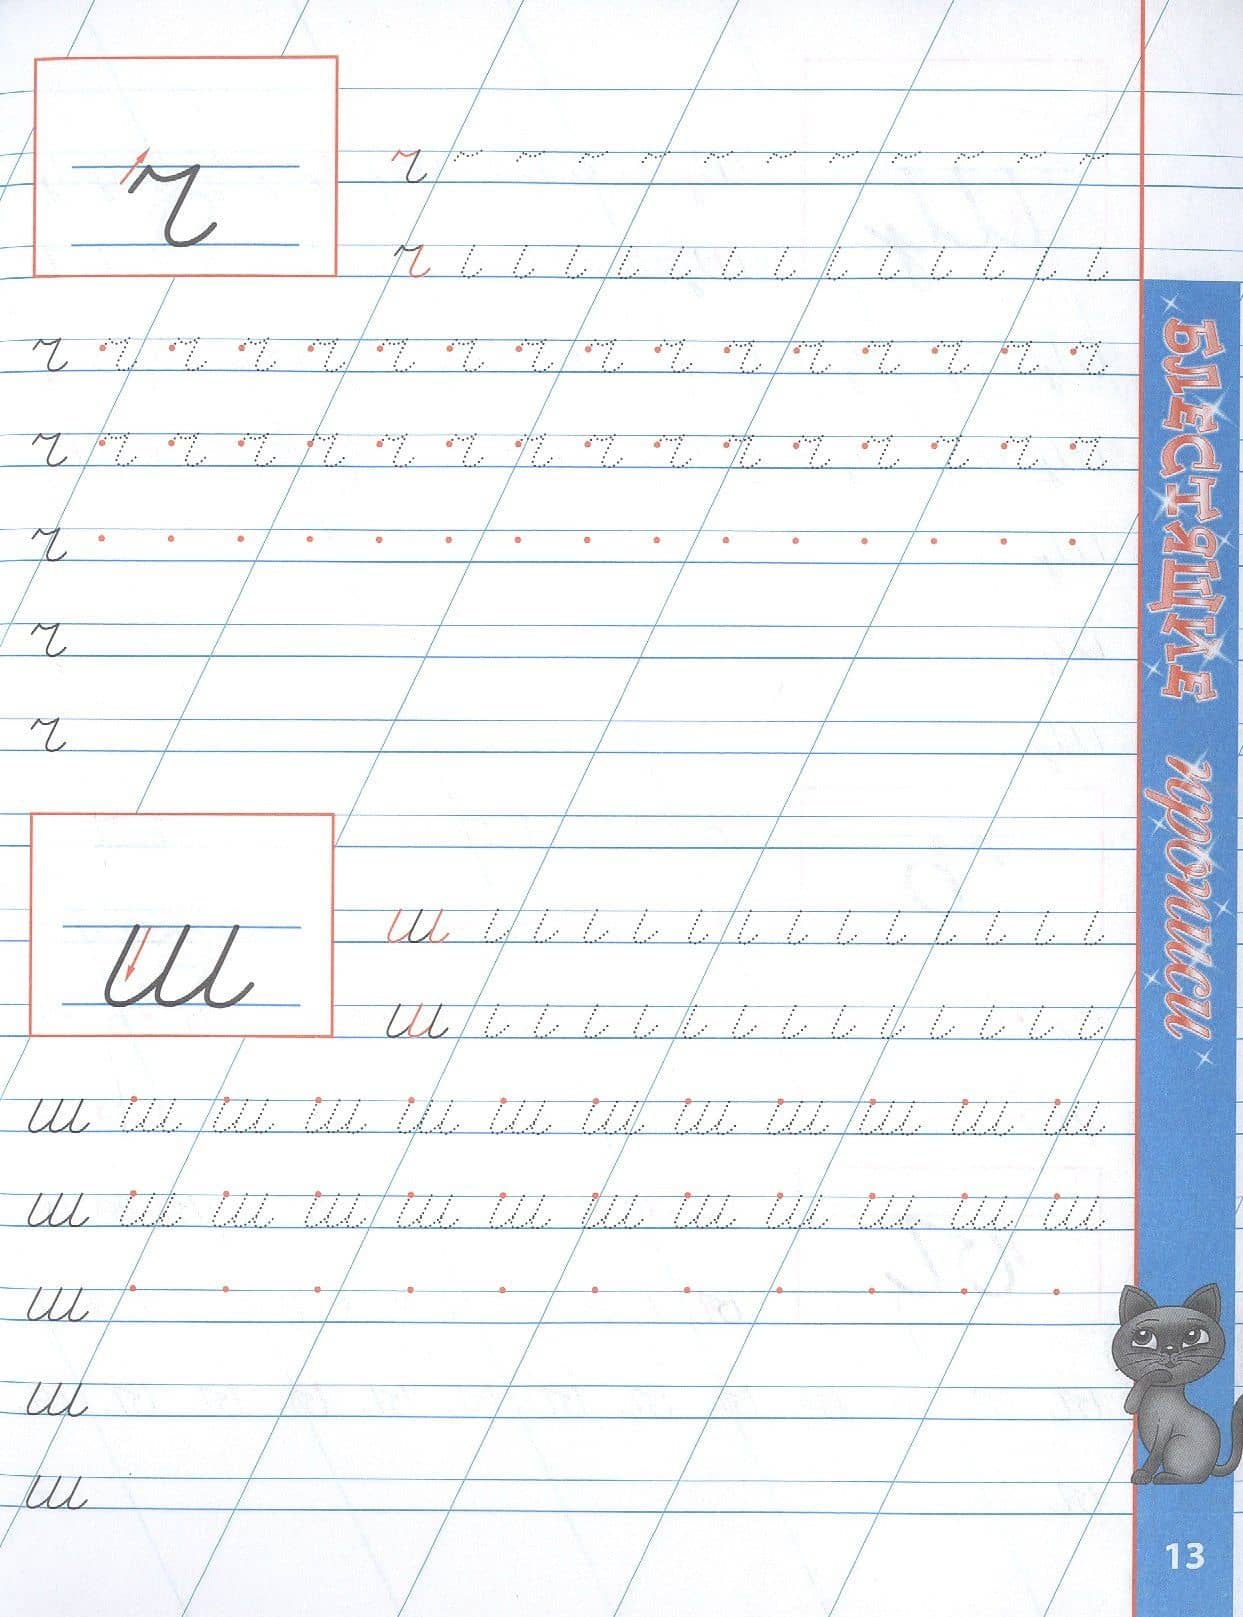 ч
ч
ч
ч ч ч ч ч ч ч ч ч ч ч ч ч ч ч ч
ч ч ч ч ч ч ч ч ч ч ч ч ч ч ч ч
ч
ч
ч
ш
ш
ш
ш ш ш ш ш ш ш ш ш ш ш ш
ш ш ш ш ш ш ш ш ш ш ш ш
ш
ш
ш
БЛЕСТЯЩИЕ прописи
13